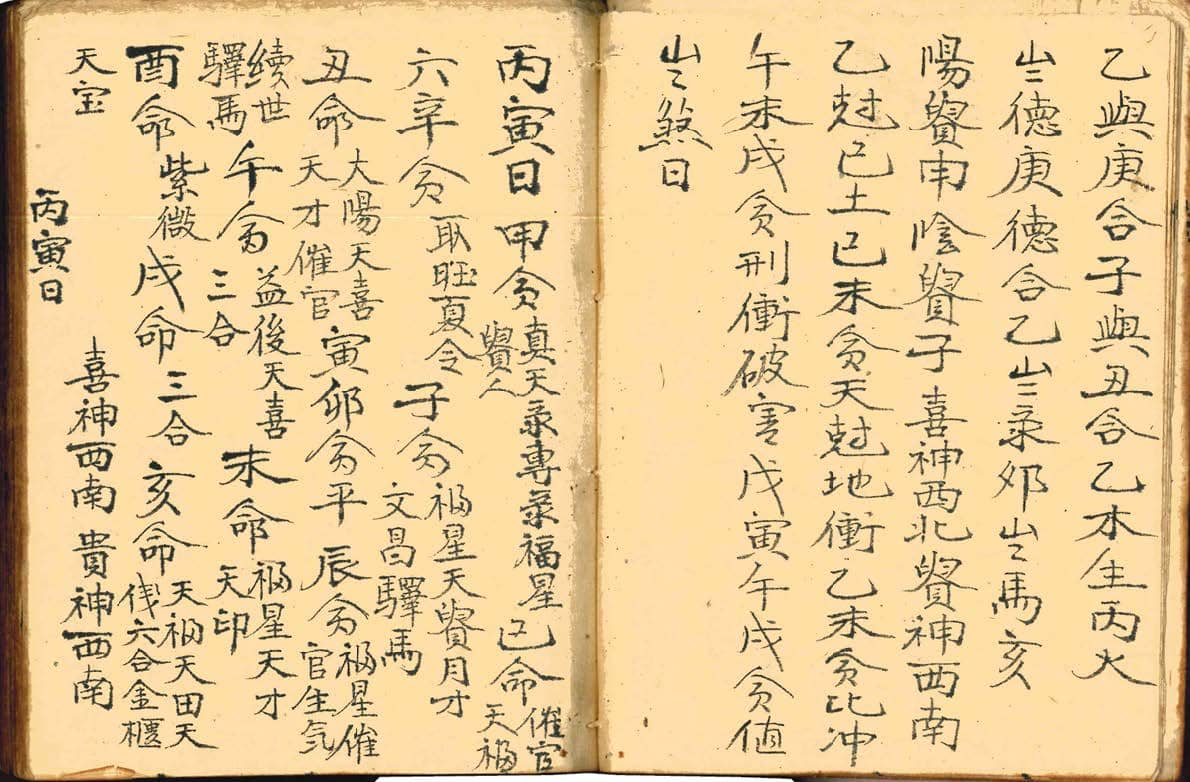 乙與庚合子與丑合乙木生丙火
歲德庚德合乙歲彔夘歲馬亥
陽貴申陰貴子喜神西北貴神西南
乙尅己土己未命天尅地衝乙未命比冲
午未戌命刑衝破害戊寅午戌命值
歲煞日
丙寅日 甲命真天彔專彔福星貴人 巳命催官天福
六辛命取旺夏令 子命福星天貴月才文昌驛馬
丑命大陽天喜天才催官 寅卯命平 辰命福星催官生気
續世驛馬 午命益後天喜三合 未命福星天才天印
酉命紫微 戌命三合 亥命天福天田天六合金櫃
天宝
喜神西南 貴神西南
丙寅日